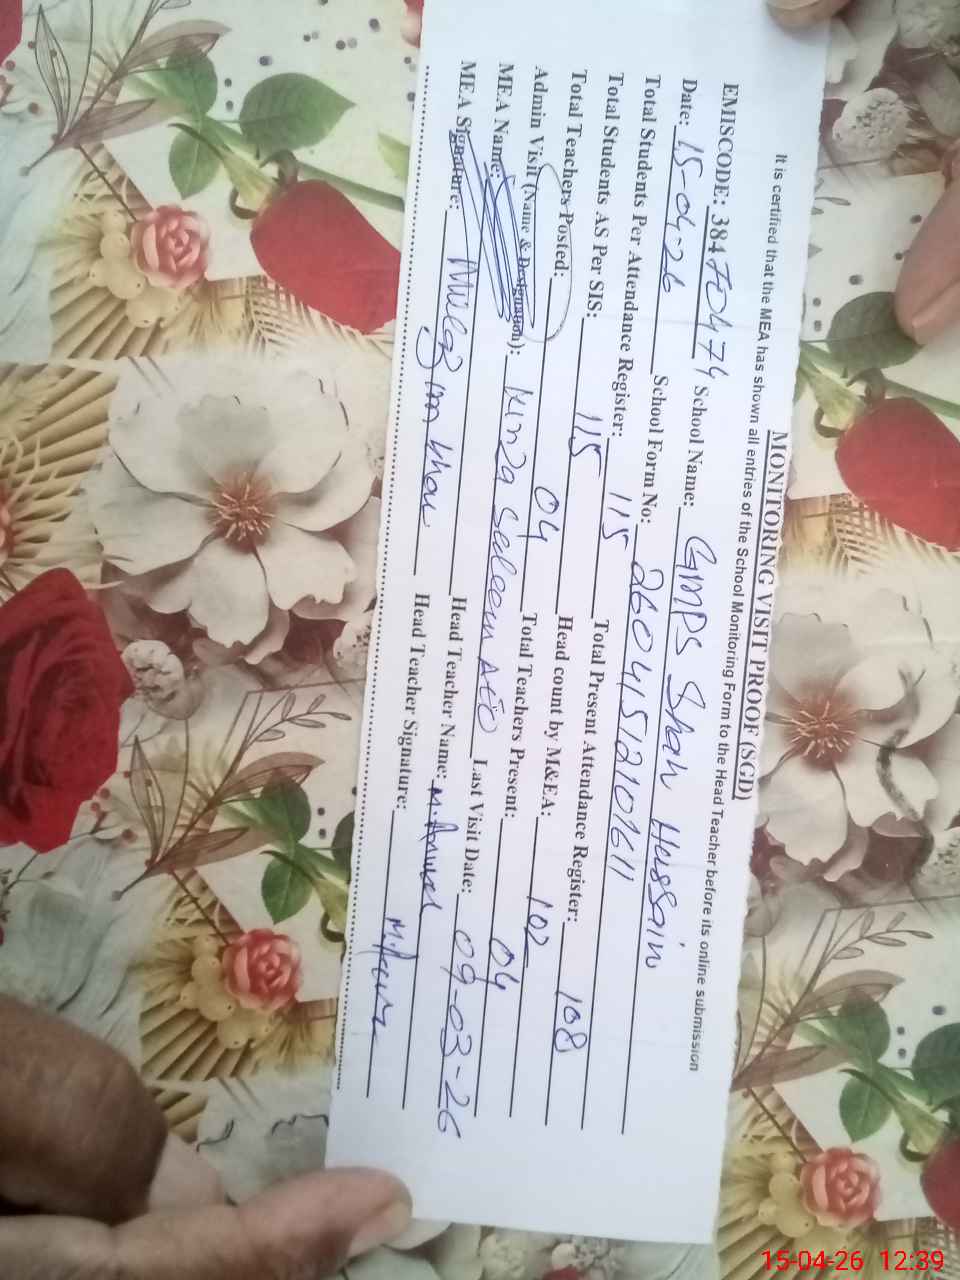 MONITORING VISIT PROOF (SGD)
It is certified that the MEA has shown all entries of the School Monitoring Form to the Head Teacher before its online submission
EMISCODE: 38470474 School Name: GMPS Shah Hussain
Date: 15-04-26 School Form No: 26041512107611
Total Students Per Attendance Register: 115 Total Present Attendance Register: 108
Total Students AS Per SIS: 115 Head count by M&EA: 102
Total Teachers Posted: 04 Total Teachers Present: 04
Admin Visit (Name & Designation): Kinza Saleem AEO Last Visit Date: 09-03-26
MEA Name: Head Teacher Name: M.
MEA Signature: khan Head Teacher Signature: M.
15-04-26 12:39